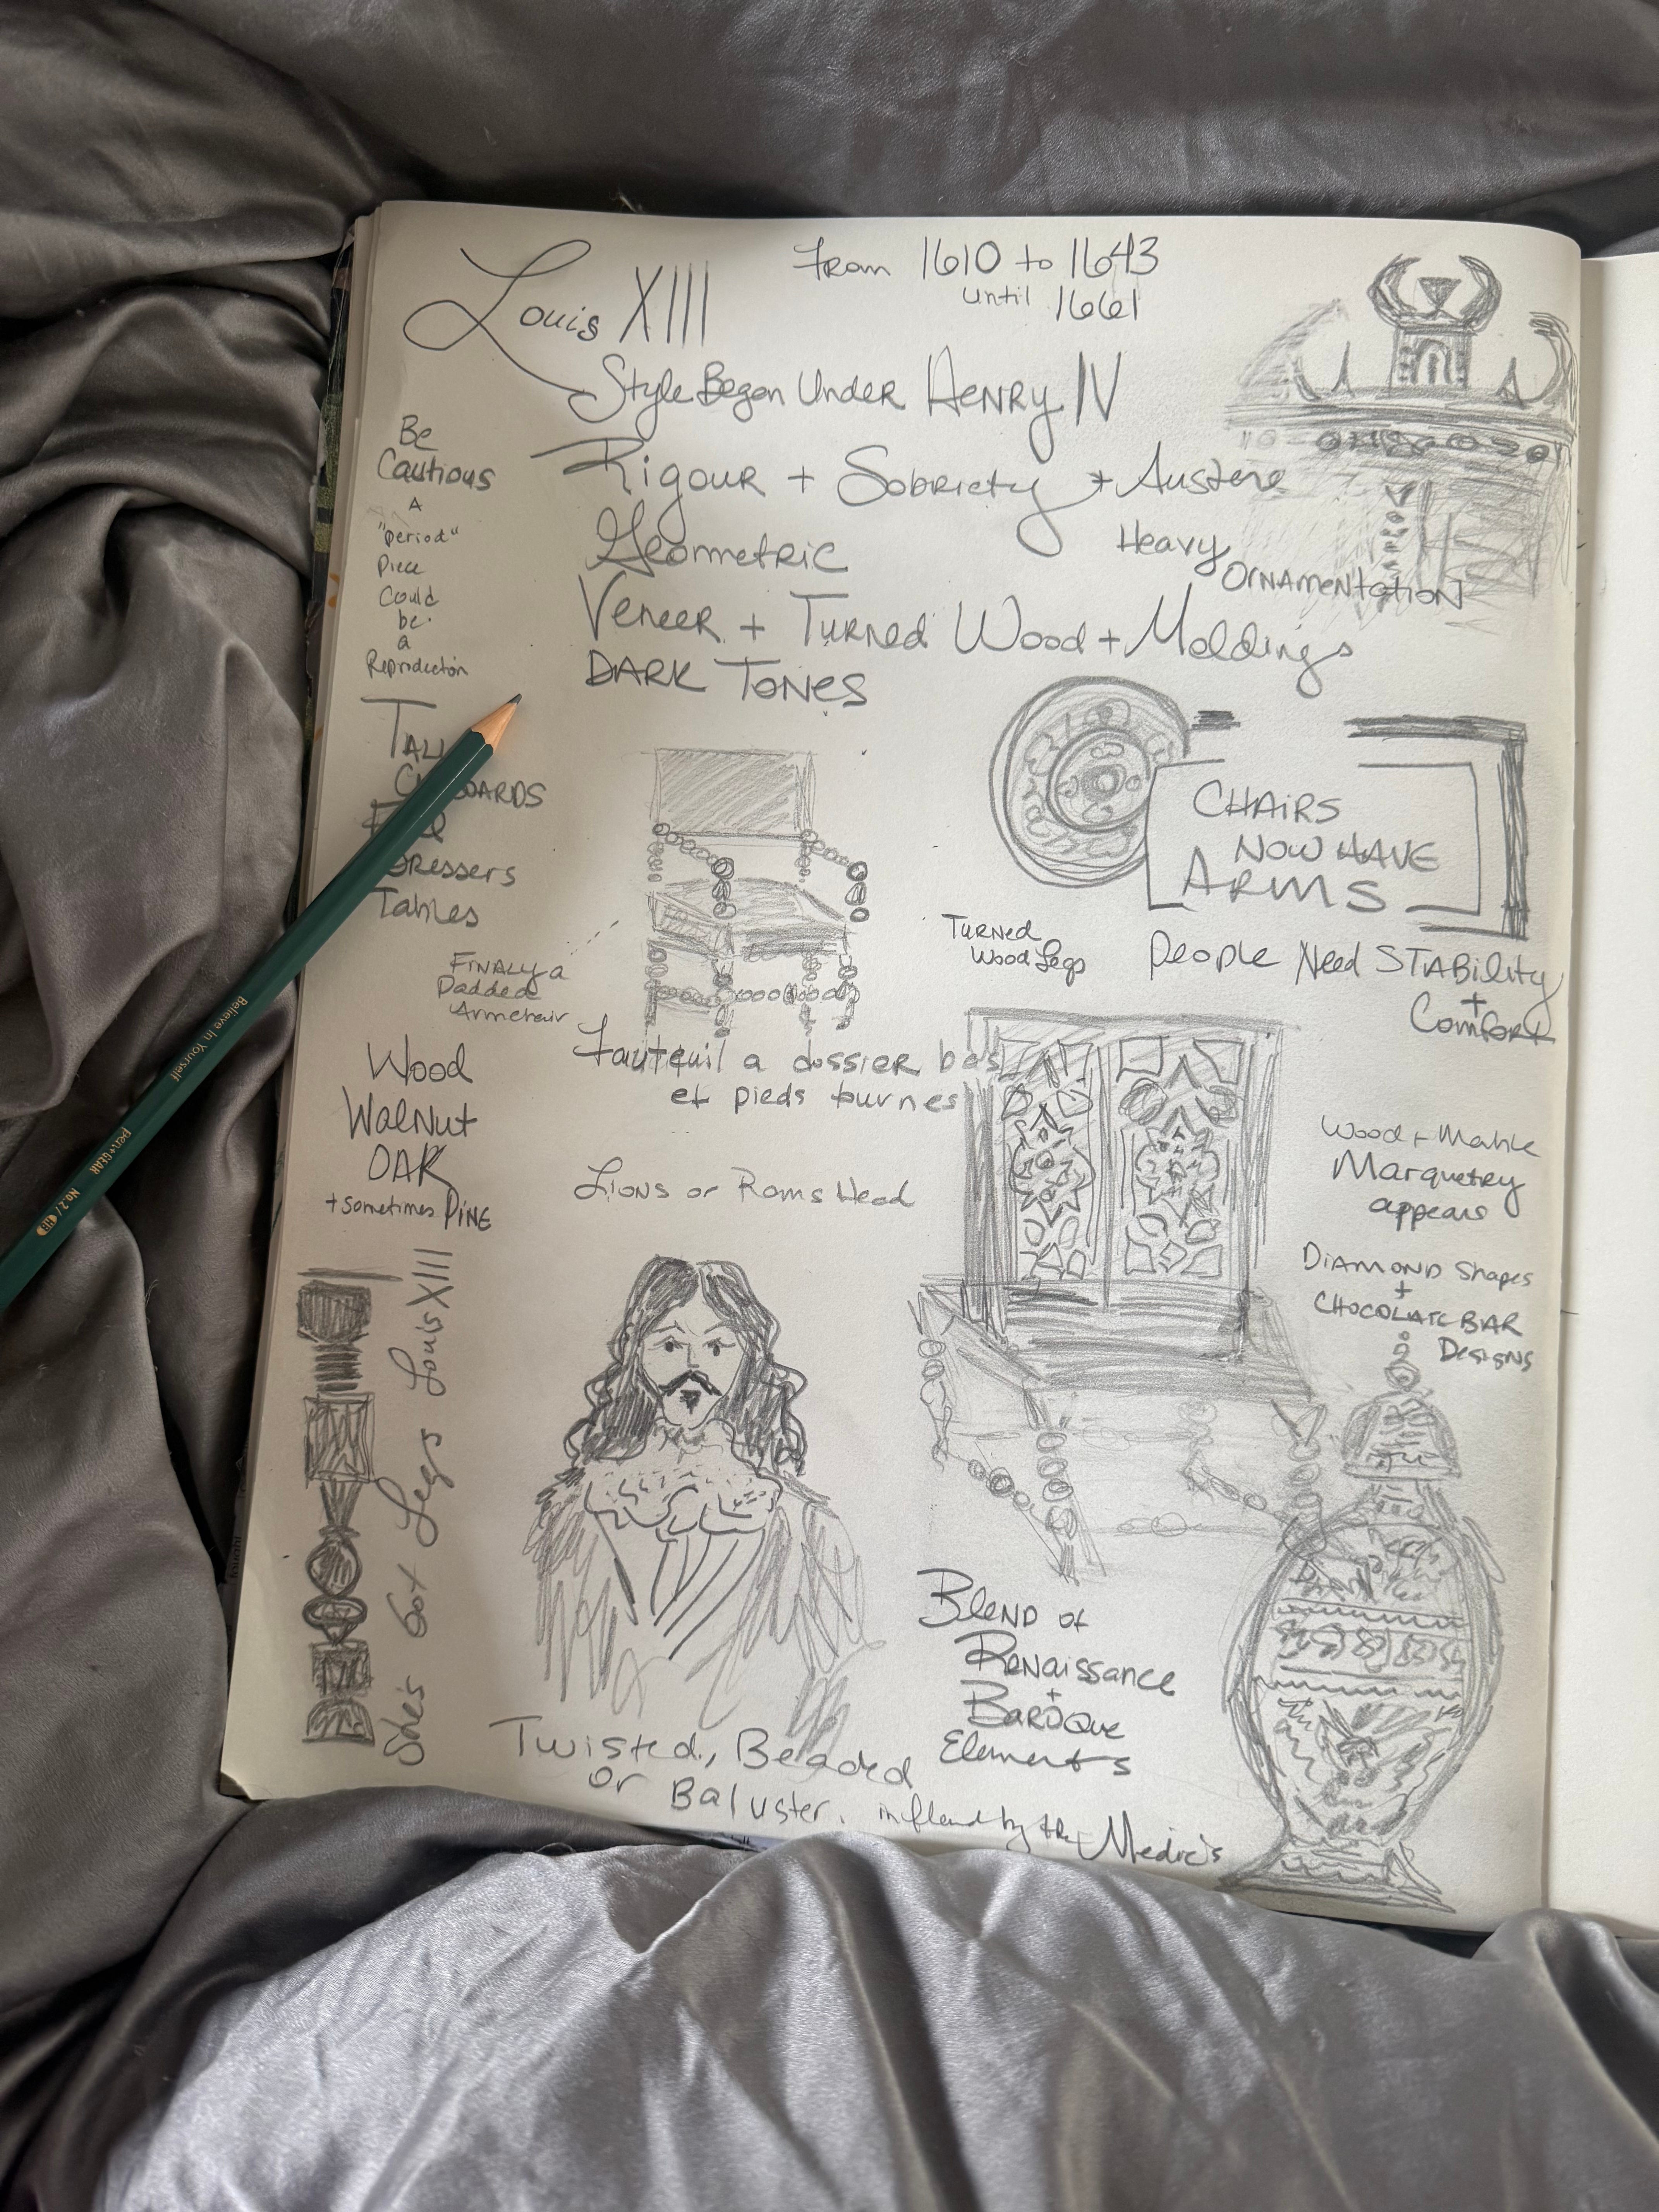 Louis XIII
From 1610 to 1643
until 1661
Style Began Under Henry IV
Rigour + Sobriety + Austere
Geometric
Heavy
Ornamentation
Veneer + Turned Wood + Moldings
DARK TONES
Be
Cautious
A
"period"
Piece
Could
be
a
Reproduction
TALL
Dressers
Tables
CHAIRS
NOW HAVE
ARMS
People Need STABility
+
Comfort
Turned
Wood Legs
FINALY a
Padded
Armchair
Fauteuil a dossier bas
et pieds turnes
Wood
WalNut
OAK
+ sometimes PINE
Lions or Rams Head
Wood + Mable
Marquetry
appears
DIAMOND Shapes
+
CHOCOLATE BAR
Designs
She's Got Legs Louis XIII
Blend of
Renaissance
+
Baroque
Elements
Twisted, Beaded
or Baluster.
by the Medic's
Believe In Yourself
pen+GEAR
No.2 / HB